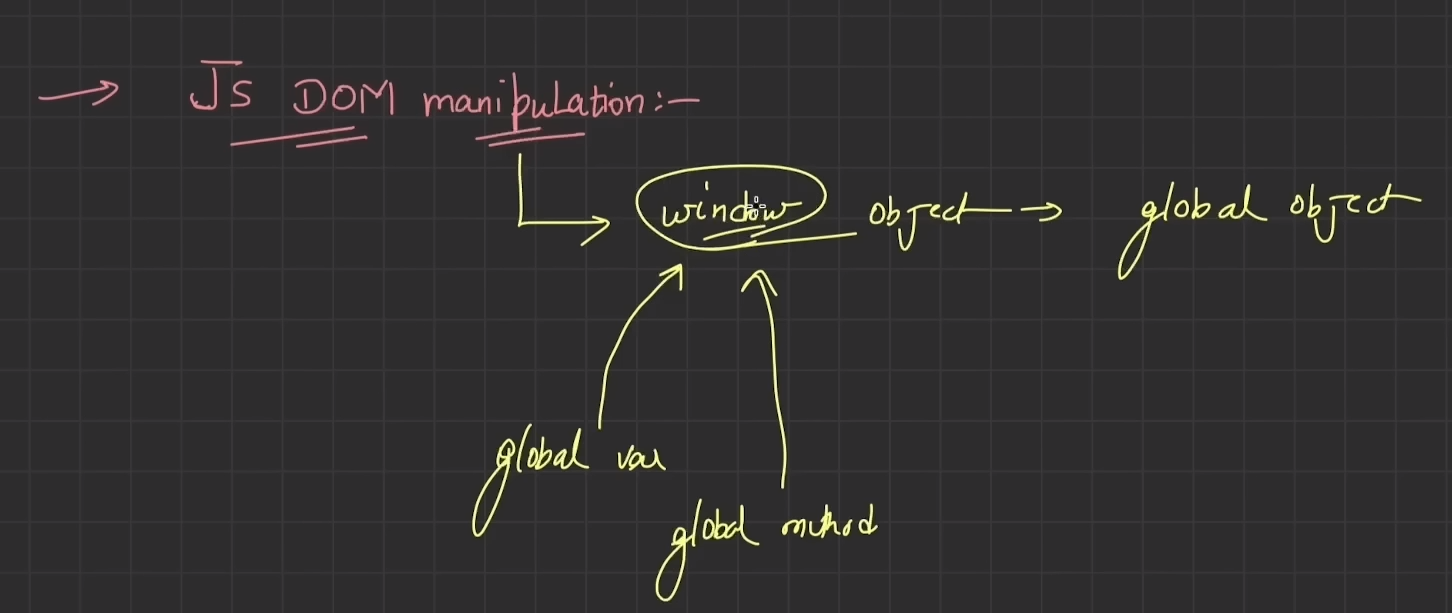 → JS DOM manipulation:-
window object → global object
global var
global method